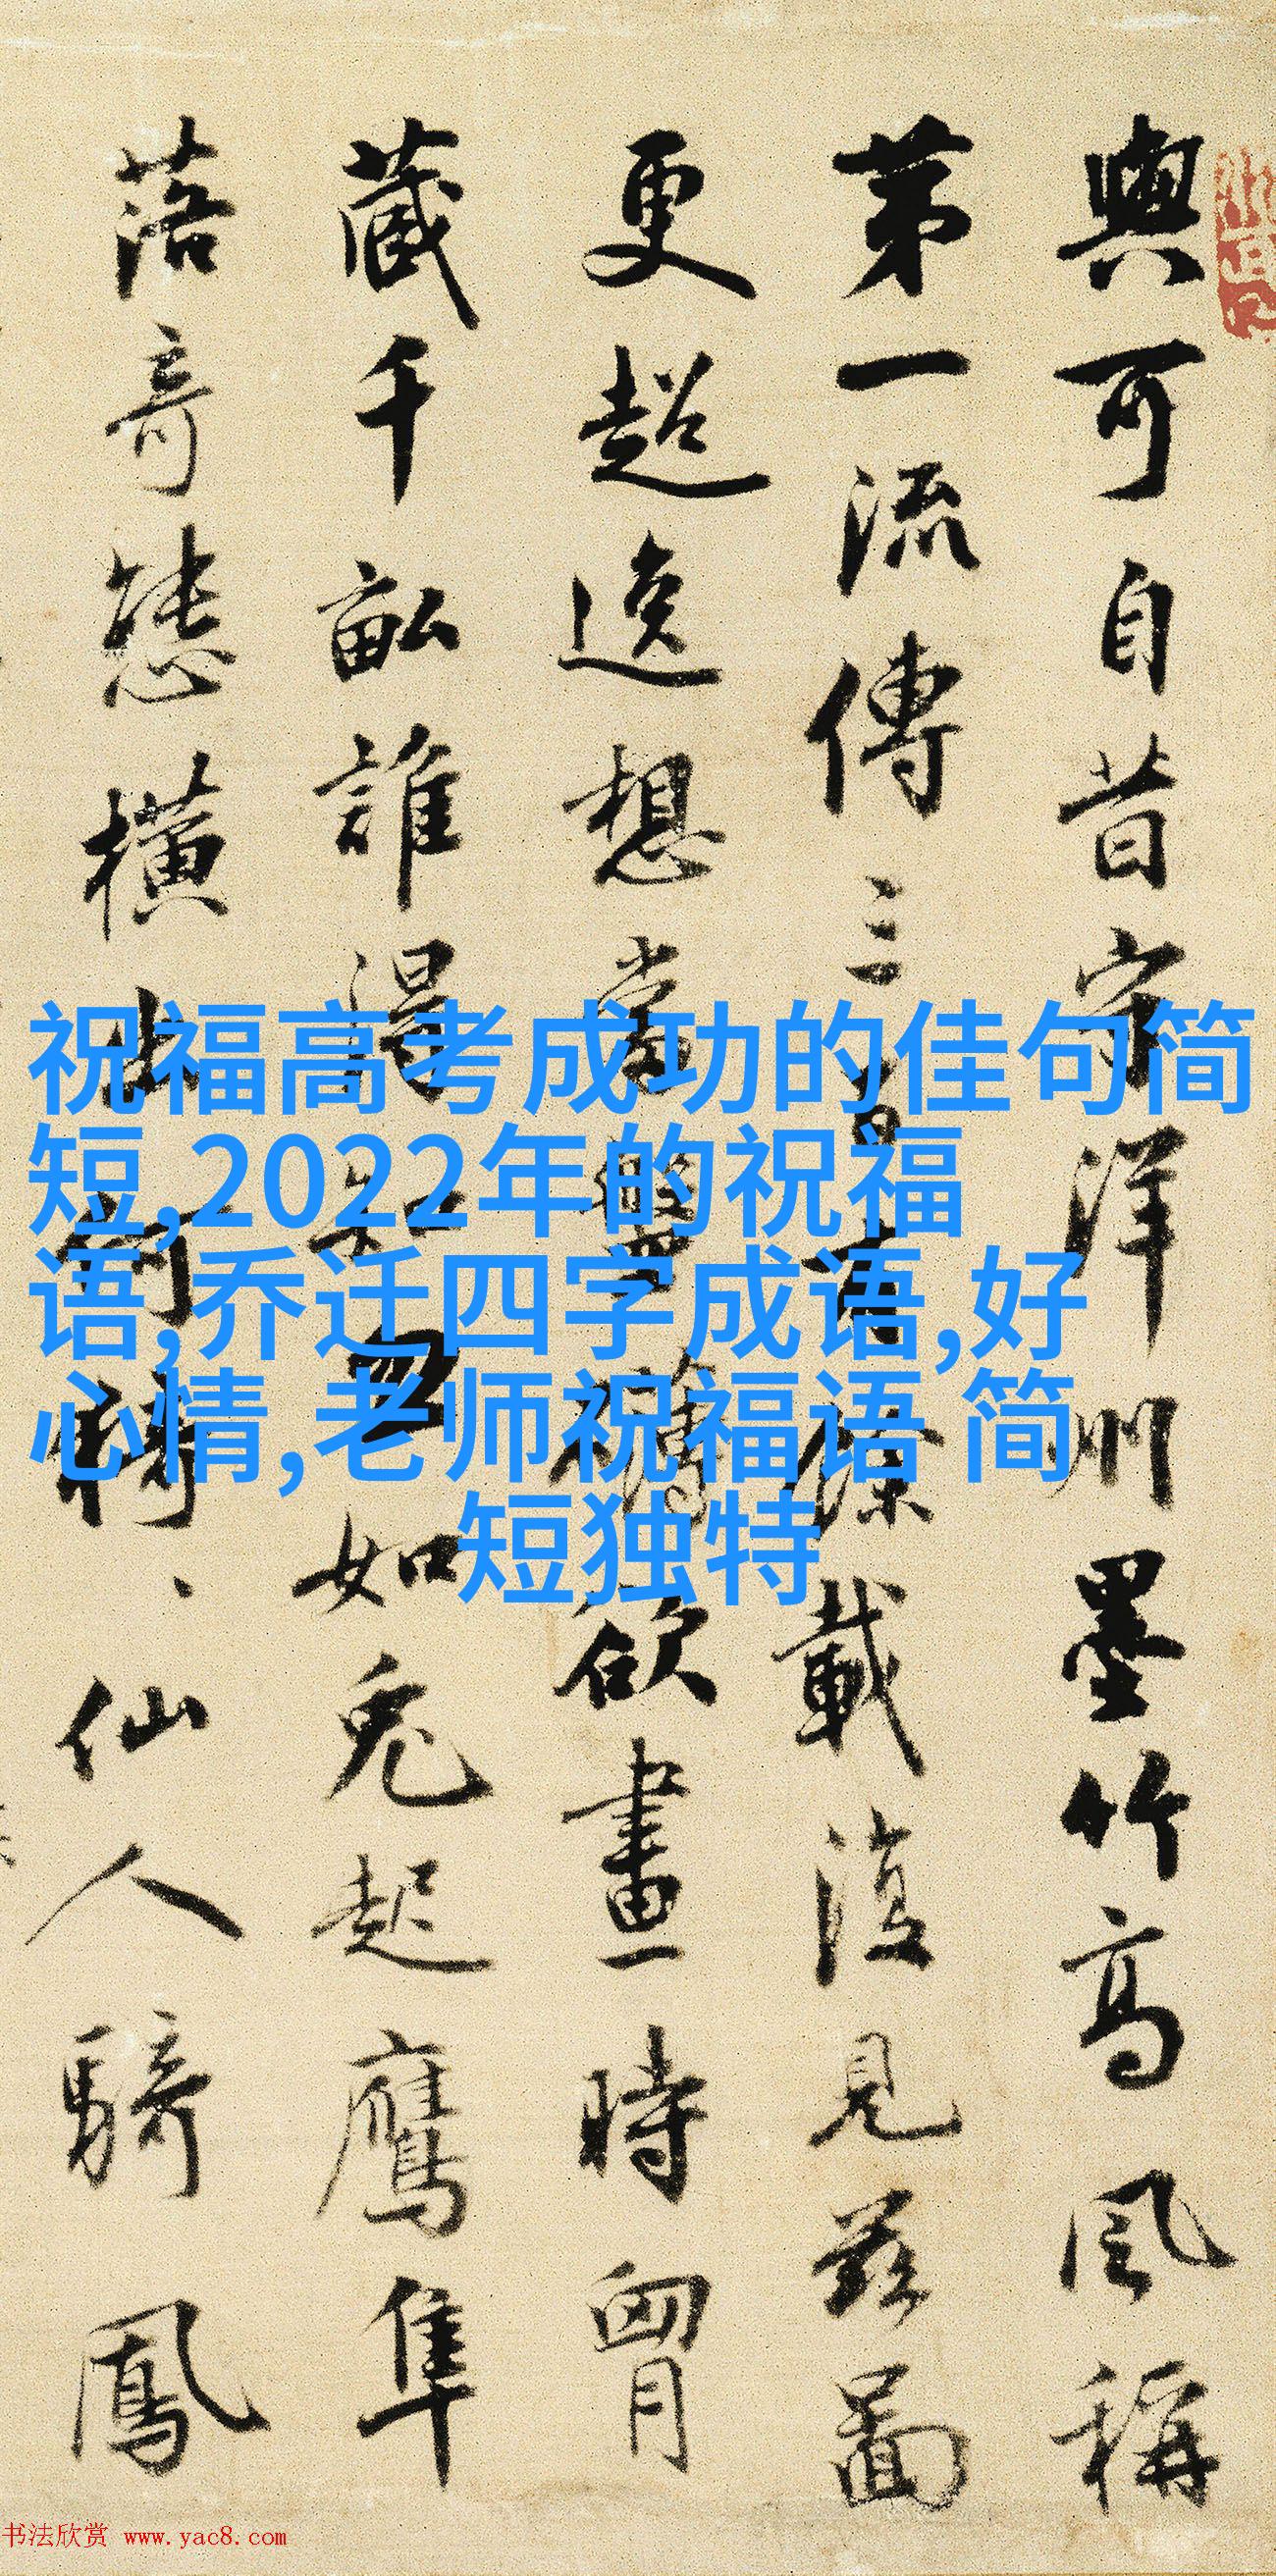 與可自昔守洋州墨竹高風稱
第一流傳三百有餘載復見茲圖
更超逸想當盤礴欲畫時胷
藏千畝誰得知忽如兔起鷹隼
落奇態橫出何猗、仙人騎鳳
祝福高考成功的佳句简
短,2022年的祝福
语,乔迁四字成语,好
心情,老师祝福语 简
短独特
书法欣赏 www.yac8.com